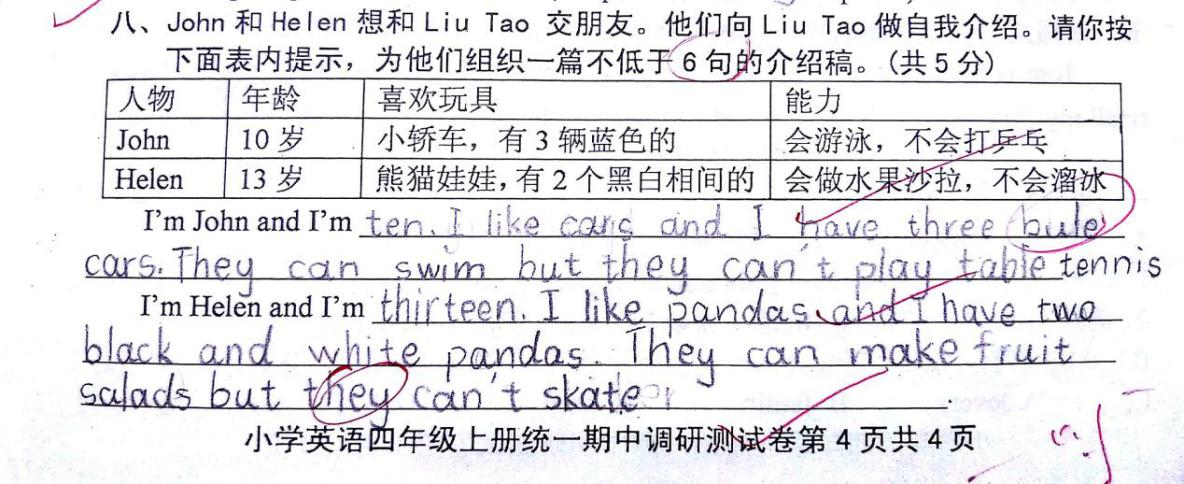 八、John 和 Helen 想和 Liu Tao 交朋友。他们向 Liu Tao 做自我介绍。请你按
下面表内提示，为他们组织一篇不低于 6 句的介绍稿。(共 5 分)
人物 年龄 喜欢玩具 能力
John 10 岁 小轿车，有 3 辆蓝色的 会游泳，不会打乒乓
Helen 13 岁 熊猫娃娃，有 2 个黑白相间的 会做水果沙拉，不会溜冰
I'm John and I'm ten. I like cars and I have three bule
cars. They can swim but they can't play table tennis
I'm Helen and I'm thirteen. I like pandas and I have two
black and white pandas. They can make fruit
salads but they can't skate
小学英语四年级上册统一期中调研测试卷第 4 页共 4 页